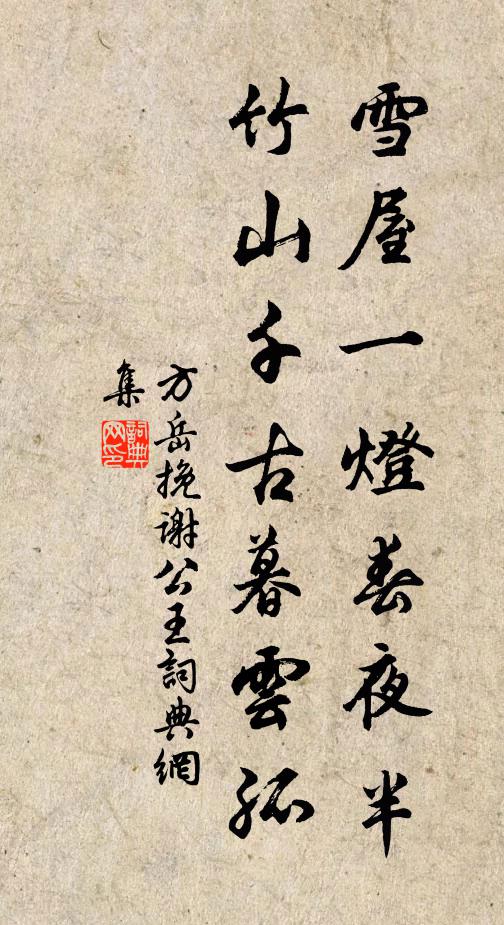 雪屋一燈春夜半
竹山千古暮雲孤
方岳挽謝公王詞典網
集
詞典网印